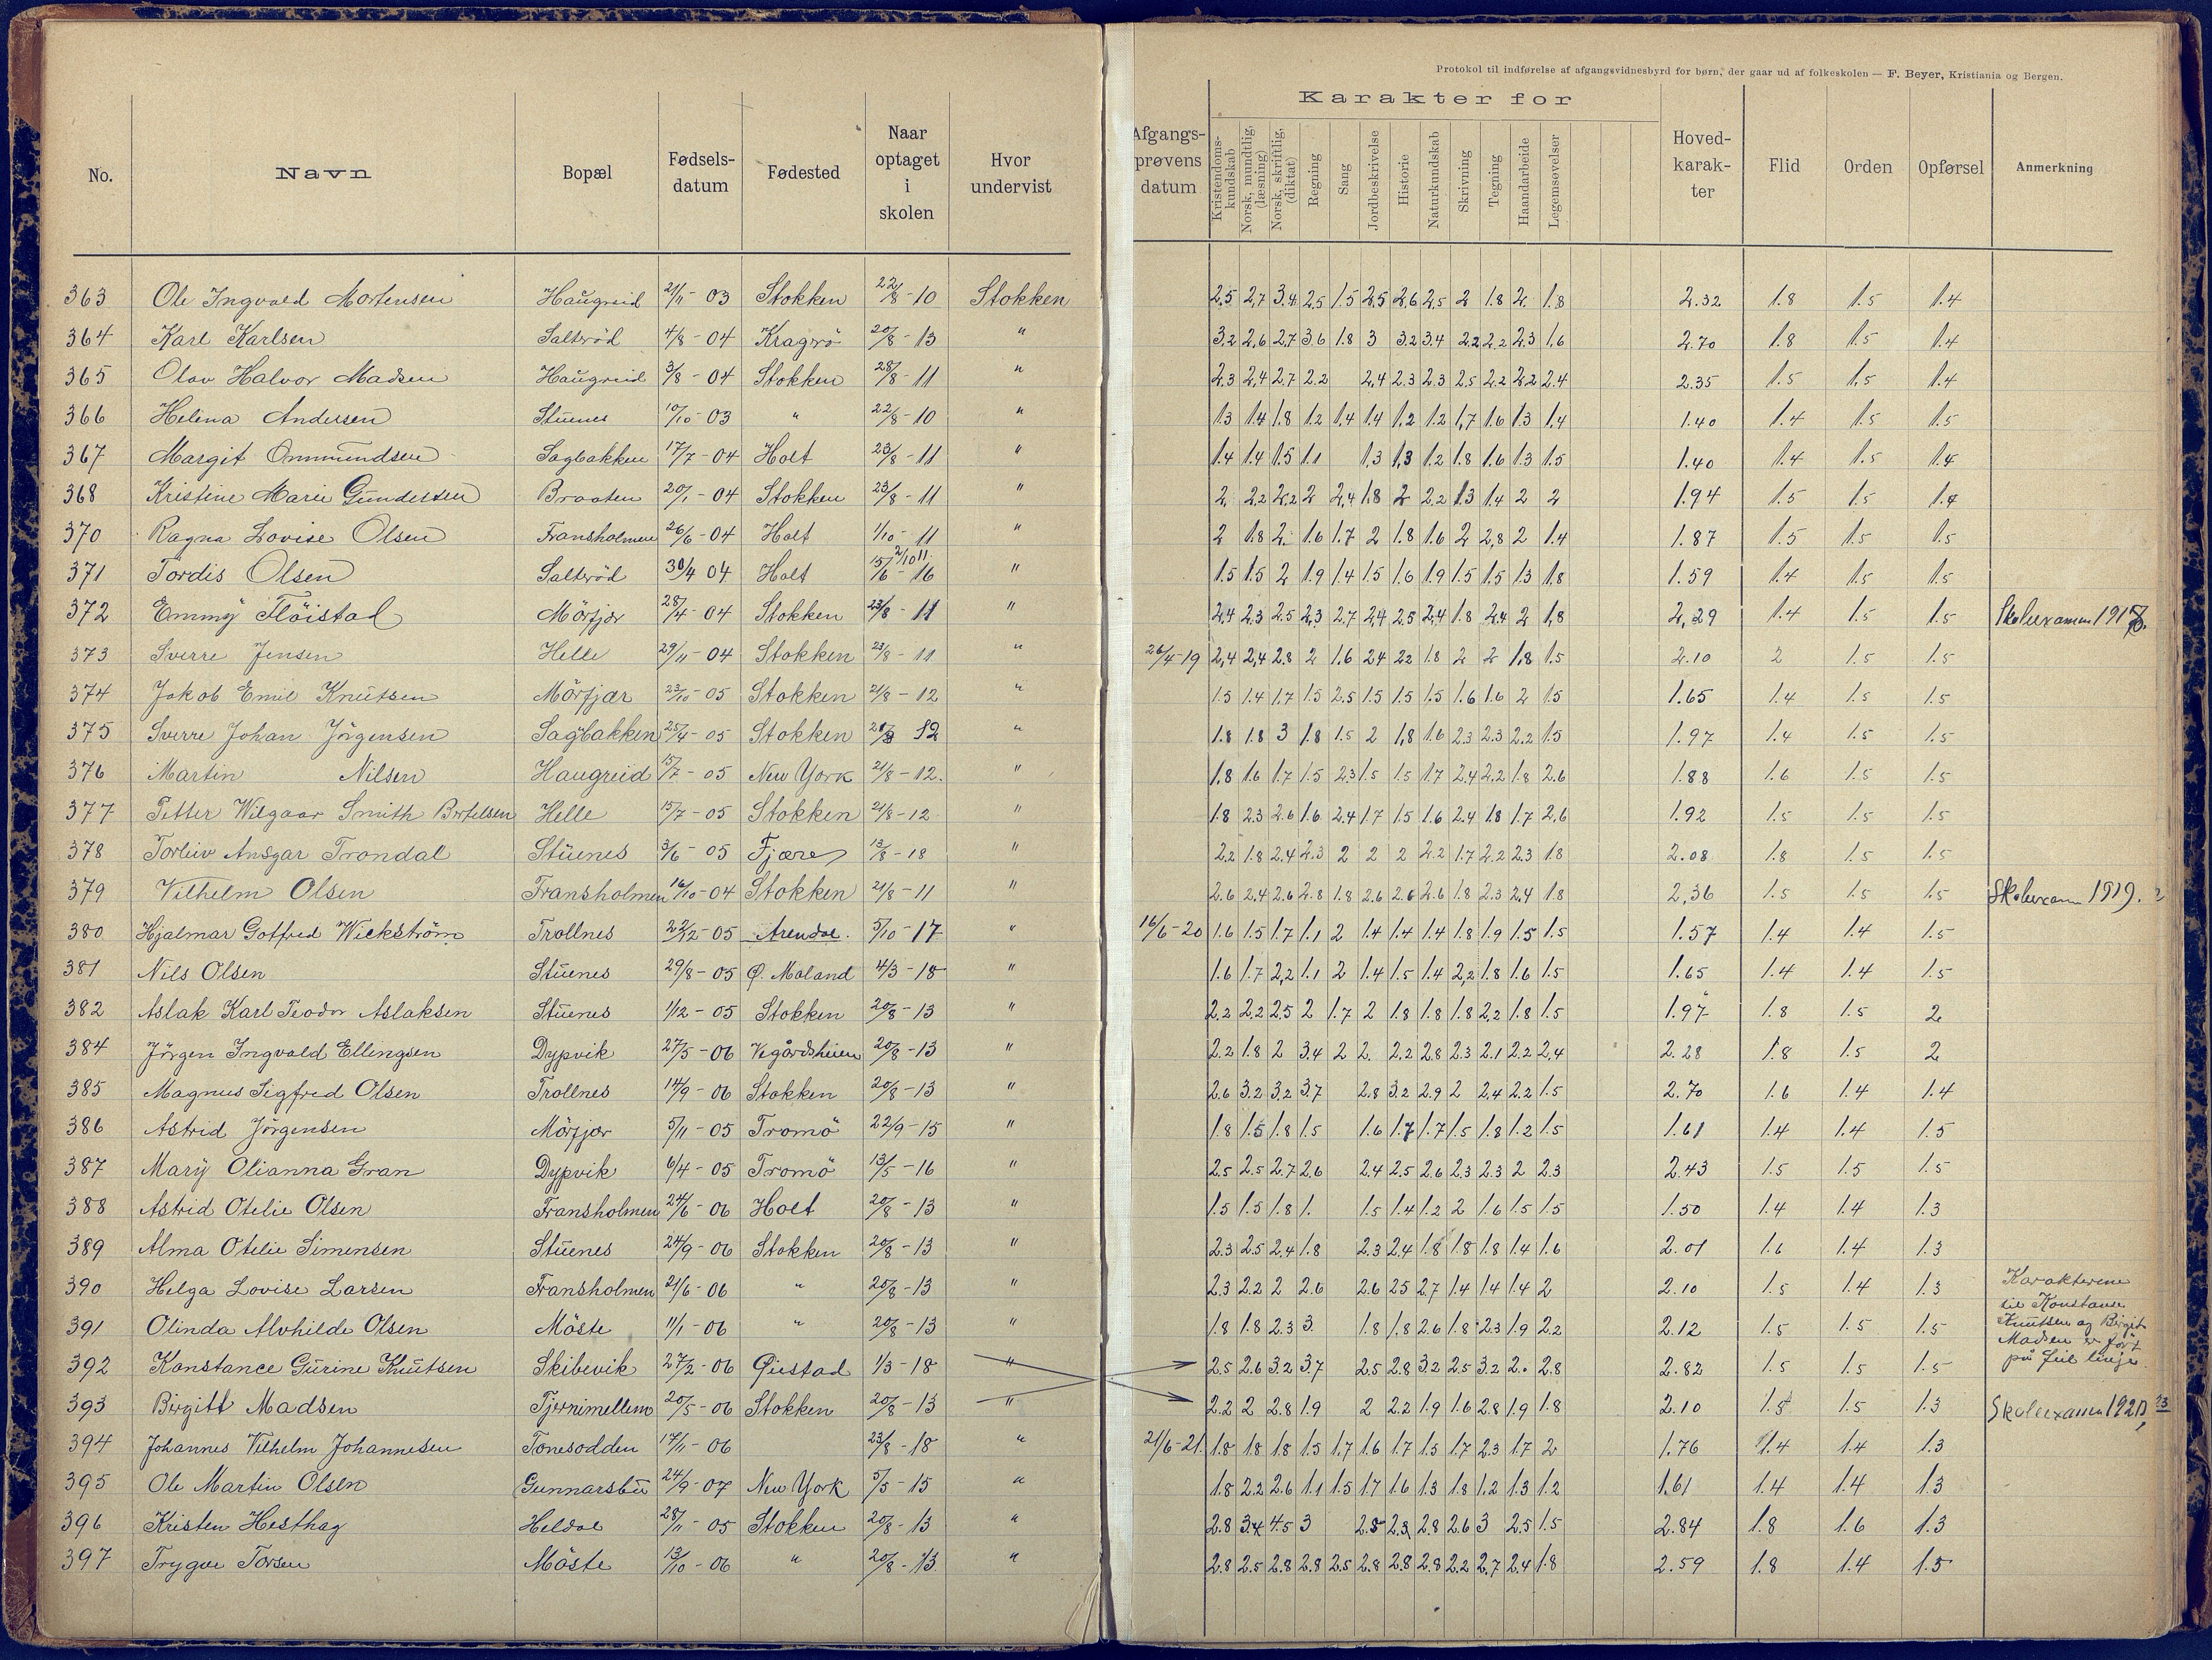 Protokol til indførelse af afgangsvidnesbyrd for børn, der gaar ud af folkeskolen — F. Beyer, Kristiania og Bergen.
No. Navn Bopæl Fødsels-datum Fødested Naar optaget i skolen Hvor undervist Afgangs-prøvens datum Karakter for Kristendoms-kundskab Norsk, mundtlig, (læsning) Norsk, skriftlig, (diktat) Regning Sang Jordbeskrivelse Historie Naturkundskab Skrivning Tegning Haandarbeide Legemsøvelser Hoved-karak-ter Flid Orden Opførsel Anmerkning
363 Ole Ingvald Mortensen Haugreid 21/11 - 03 Stokken 22/8 - 10 Stokken 2.5 2.7 3.4 2.5 1.5 2.5 2.6 2.5 2 1.8 2 1.8 2.32 1.8 1.5 1.4
364 Karl Karlsen Salterød 4/8 - 04 Kragerö 20/8 - 13 " 3.2 2.6 2.7 3.6 1.8 3 3.2 3.4 2.2 2.2 2.3 1.6 2.70 1.8 1.5 1.4
365 Olav Halvor Madsen Haugreid 3/8 - 04 Stokken 28/8 - 11 " 2.3 2.4 2.7 2.2 2.4 2.3 2.3 2.5 2.2 2.2 2.4 2.35 1.5 1.5 1.4
366 Helena Andersen Stuenes 10/10 - 03 " 22/8 - 10 " 1.3 1.4 1.8 1.2 1.4 1.4 1.2 1.2 1.7 1.6 1.3 1.4 1.40 1.4 1.5 1.5
367 Margit Ommundsen Sagbakken 17/7 - 04 Holt 23/8 - 11 " 1.4 1.4 1.5 1.1 1.3 1.3 1.2 1.8 1.6 1.3 1.5 1.40 1.4 1.5 1.4
368 Kristine Marie Gundersen Braaten 20/1 - 04 Stokken 23/8 - 11 " 2 2.2 2.2 2 2.4 1.8 2 2.2 1.3 1.4 2 2 1.94 1.5 1.5 1.4
370 Ragna Lovise Olsen Fransholmen 26/6 - 04 Holt 1/10 - 11 " 2 1.8 2. 1.6 1.7 2 1.8 1.6 2 2.8 2 1.4 1.87 1.5 1.5 1.5
371 Tordis Olsen Salterød 30/4 04 Holt 15/6 - 16 2/10 11 " 1.5 1.5 2 1.9 1.4 1.5 1.6 1.9 1.5 1.5 1.3 1.8 1.59 1.4 1.5 1.5
372 Emmy Flöistad Mörfjær 28/4 - 04 Stokken 23/8 - 11 " 2.4 2.3 2.5 2.3 2.7 2.4 2.5 2.4 1.8 2.4 2 1.8 2.29 1.4 1.5 1.5 Skoleexamen
373 Sverre Jensen Helle 29/11 - 04 Stokken 23/8 - 11 " 26/4 - 19 2.4 2.4 2.8 2 1.6 2.4 2.2 1.8 2 2 1.8 1.5 2.10 2 1.5 1.5
374 Jakob Emil Knutsen Mörfjær 23/10 - 05 Stokken 21/8 - 12 " 1.5 1.4 1.7 1.5 2.5 1.5 1.5 1.5 1.6 1.6 2 1.5 1.65 1.4 1.5 1.5
375 Sverre Johan Jörgensen Sagbakken 25/4 - 05 Stokken 21/8 12 " 1.8 1.8 3 1.8 1.5 2 1.8 1.6 2.3 2.3 2.2 1.5 1.97 1.4 1.5 1.5
376 Martin Nilsen Haugreid 15/7 - 05 New York 21/8 - 12. " 1.8 1.6 1.7 1.5 2.3 1.5 1.5 1.7 2.4 2.2 1.8 2.6 1.88 1.6 1.5 1.5
377 Petter Wilgaar Smith Bertelsen Helle 15/7 - 05 Stokken 21/8 - 12 " 1.8 2.3 2.6 1.6 2.4 1.7 1.5 1.6 2.4 1.8 1.7 2.6 1.92 1.5 1.5 1.5
378 Torleiv Ansgar Trondal Stuenes 3/6 - 05 Fjære 13/8 - 18 " 2.2 1.8 2.4 2.3 2 2 2 2.2 1.7 2.2 2.3 1.8 2.08 1.8 1.5 1.5
379 Vilhelm Olsen Fransholmen 16/10 - 04 Stokken 21/8 - 11 " 2.6 2.4 2.6 2.8 1.8 2.6 2.6 2.6 1.8 2.3 2.4 1.8 2.36 1.5 1.5 1.5 Skoleexamen 1919.
380 Hjalmar Gotfred Wickström Trollnes 22/12 - 05 Arendal. 5/10 - 17 " 16/6 - 20 1.6 1.5 1.7 1.1 2 1.4 1.4 1.4 1.8 1.9 1.5 1.5 1.57 1.4 1.4 1.5
381 Nils Olsen Stuenes 29/8 - 05 Ø. Moland 4/3 - 18 " 1.6 1.7 2.2 1.1 2 1.4 1.5 1.4 2.2 1.8 1.6 1.5 1.65 1.4 1.4 1.5
382 Aslak Karl Teodor Aslaksen Stuenes 1/12 - 05 Stokken 20/8 - 13 " 2.2 2.2 2.5 2 1.7 2 1.8 1.8 1.8 2.2 1.8 1.5 1.97 1.8 1.5 2
384 Jörgen Ingvald Ellingsen Dypvik 27/5 - 06 Vegårdsheien 20/8 - 13 " 2.2 1.8 2 3.4 2 2. 2.2 2.8 2.3 2.1 2.2 2.4 2.28 1.8 1.5 2
385 Magnus Sigfred Olsen Trollnes 14/9 - 06 Stokken 20/8 - 13 " 2.6 3.2 3.2 3.7 2.8 3.2 2.9 2 2.4 2.2 1.5 2.70 1.6 1.4 1.4
386 Astrid Jörgensen Mörfjær 5/11 - 05 Tromö 22/9 - 15 " 1.8 1.5 1.8 1.5 1.6 1.7 1.7 1.5 1.8 1.2 1.5 1.61 1.4 1.4 1.5
387 Mary Olianna Gran Dypvik 6/4 - 05 Tromö 13/5 - 16 " 2.5 2.5 2.7 2.6 2.4 2.5 2.6 2.3 2.3 2 2.3 2.43 1.5 1.5 1.5
388 Astrid Otelie Olsen Fransholmen 24/6 - 06 Holt 20/8 - 13 " 1.5 1.5 1.8 1. 1.5 1.4 1.2 2 1.6 1.5 1.5 1.50 1.4 1.4 1.3
389 Alma Otelie Simensen Stuenes 24/9 - 06 Stokken 20/8 - 13 " 2.3 2.5 2.4 1.8 2.3 2.4 1.8 1.8 1.8 1.4 1.6 2.01 1.6 1.4 1.3
390 Helga Lovise Larsen Fransholmen 21/6 - 06 " 20/8 - 13 " 2.3 2.2 2 2.6 2.6 2.5 2.7 1.4 1.4 1.4 2 2.10 1.5 1.4 1.3 Karakterene
til Konstanse
391 Olinda Alvhilde Olsen Möste 11/1 - 06 " 20/8 - 13 " 1.8 1.8 2.3 3. 1.8 1.8 2.6 1.8 2.3 1.9 2.2 2.12 1.5 1.5 1.5 Knutsen og Birgit
Madsen er ført
392 Konstance Gurine Knutsen Skibevik 27/2 - 06 Øiestad 1/3 - 18 " 2.5 2.6 3.2 3.7 2.5 2.8 3.2 2.5 3.2 2. 2.8 2.82 1.5 1.5 1.5 på feil linje.
393 Birgitt Madsen Tjernimellem 20/5 - 06 Stokken 20/8 - 13 " 2.2 2 2.8 1.9 2 2.2 1.9 1.6 2.8 1.9 1.8 2.10 1.5 1.5 1.3 Skoleexamen
394 Johannes Vilhelm Johannesen Tonesodden 17/11 - 06 23/8 - 18 " 21/6 - 21. 1.8 1.8 1.8 1.5 1.7 1.6 1.7 1.5 1.7 2.3 1.7 2 1.76 1.4 1.4 1.3
395 Ole Martin Olsen Gunnarsbu 24/9 - 07 New York 5/5 - 15 " 1.8 2.2 2.6 1.1 1.5 1.7 1.6 1.3 1.8 1.2 1.3 1.2 1.61 1.4 1.4 1.3
396 Kristen Hesthag Heldal 28/11 - 05 Stokken 20/8 - 13 " 2.8 3.4 4.5 3 2.5 2.3 2.8 2.6 3 2.5 1.5 2.84 1.8 1.6 1.3
397 Trygve Torsen Möste 13/10 - 06 " 20/8 - 13 " 2.8 2.5 2.8 2.8 2.5 2.8 2.8 2.8 2.2 2.7 2.4 1.8 2.59 1.8 1.4 1.5